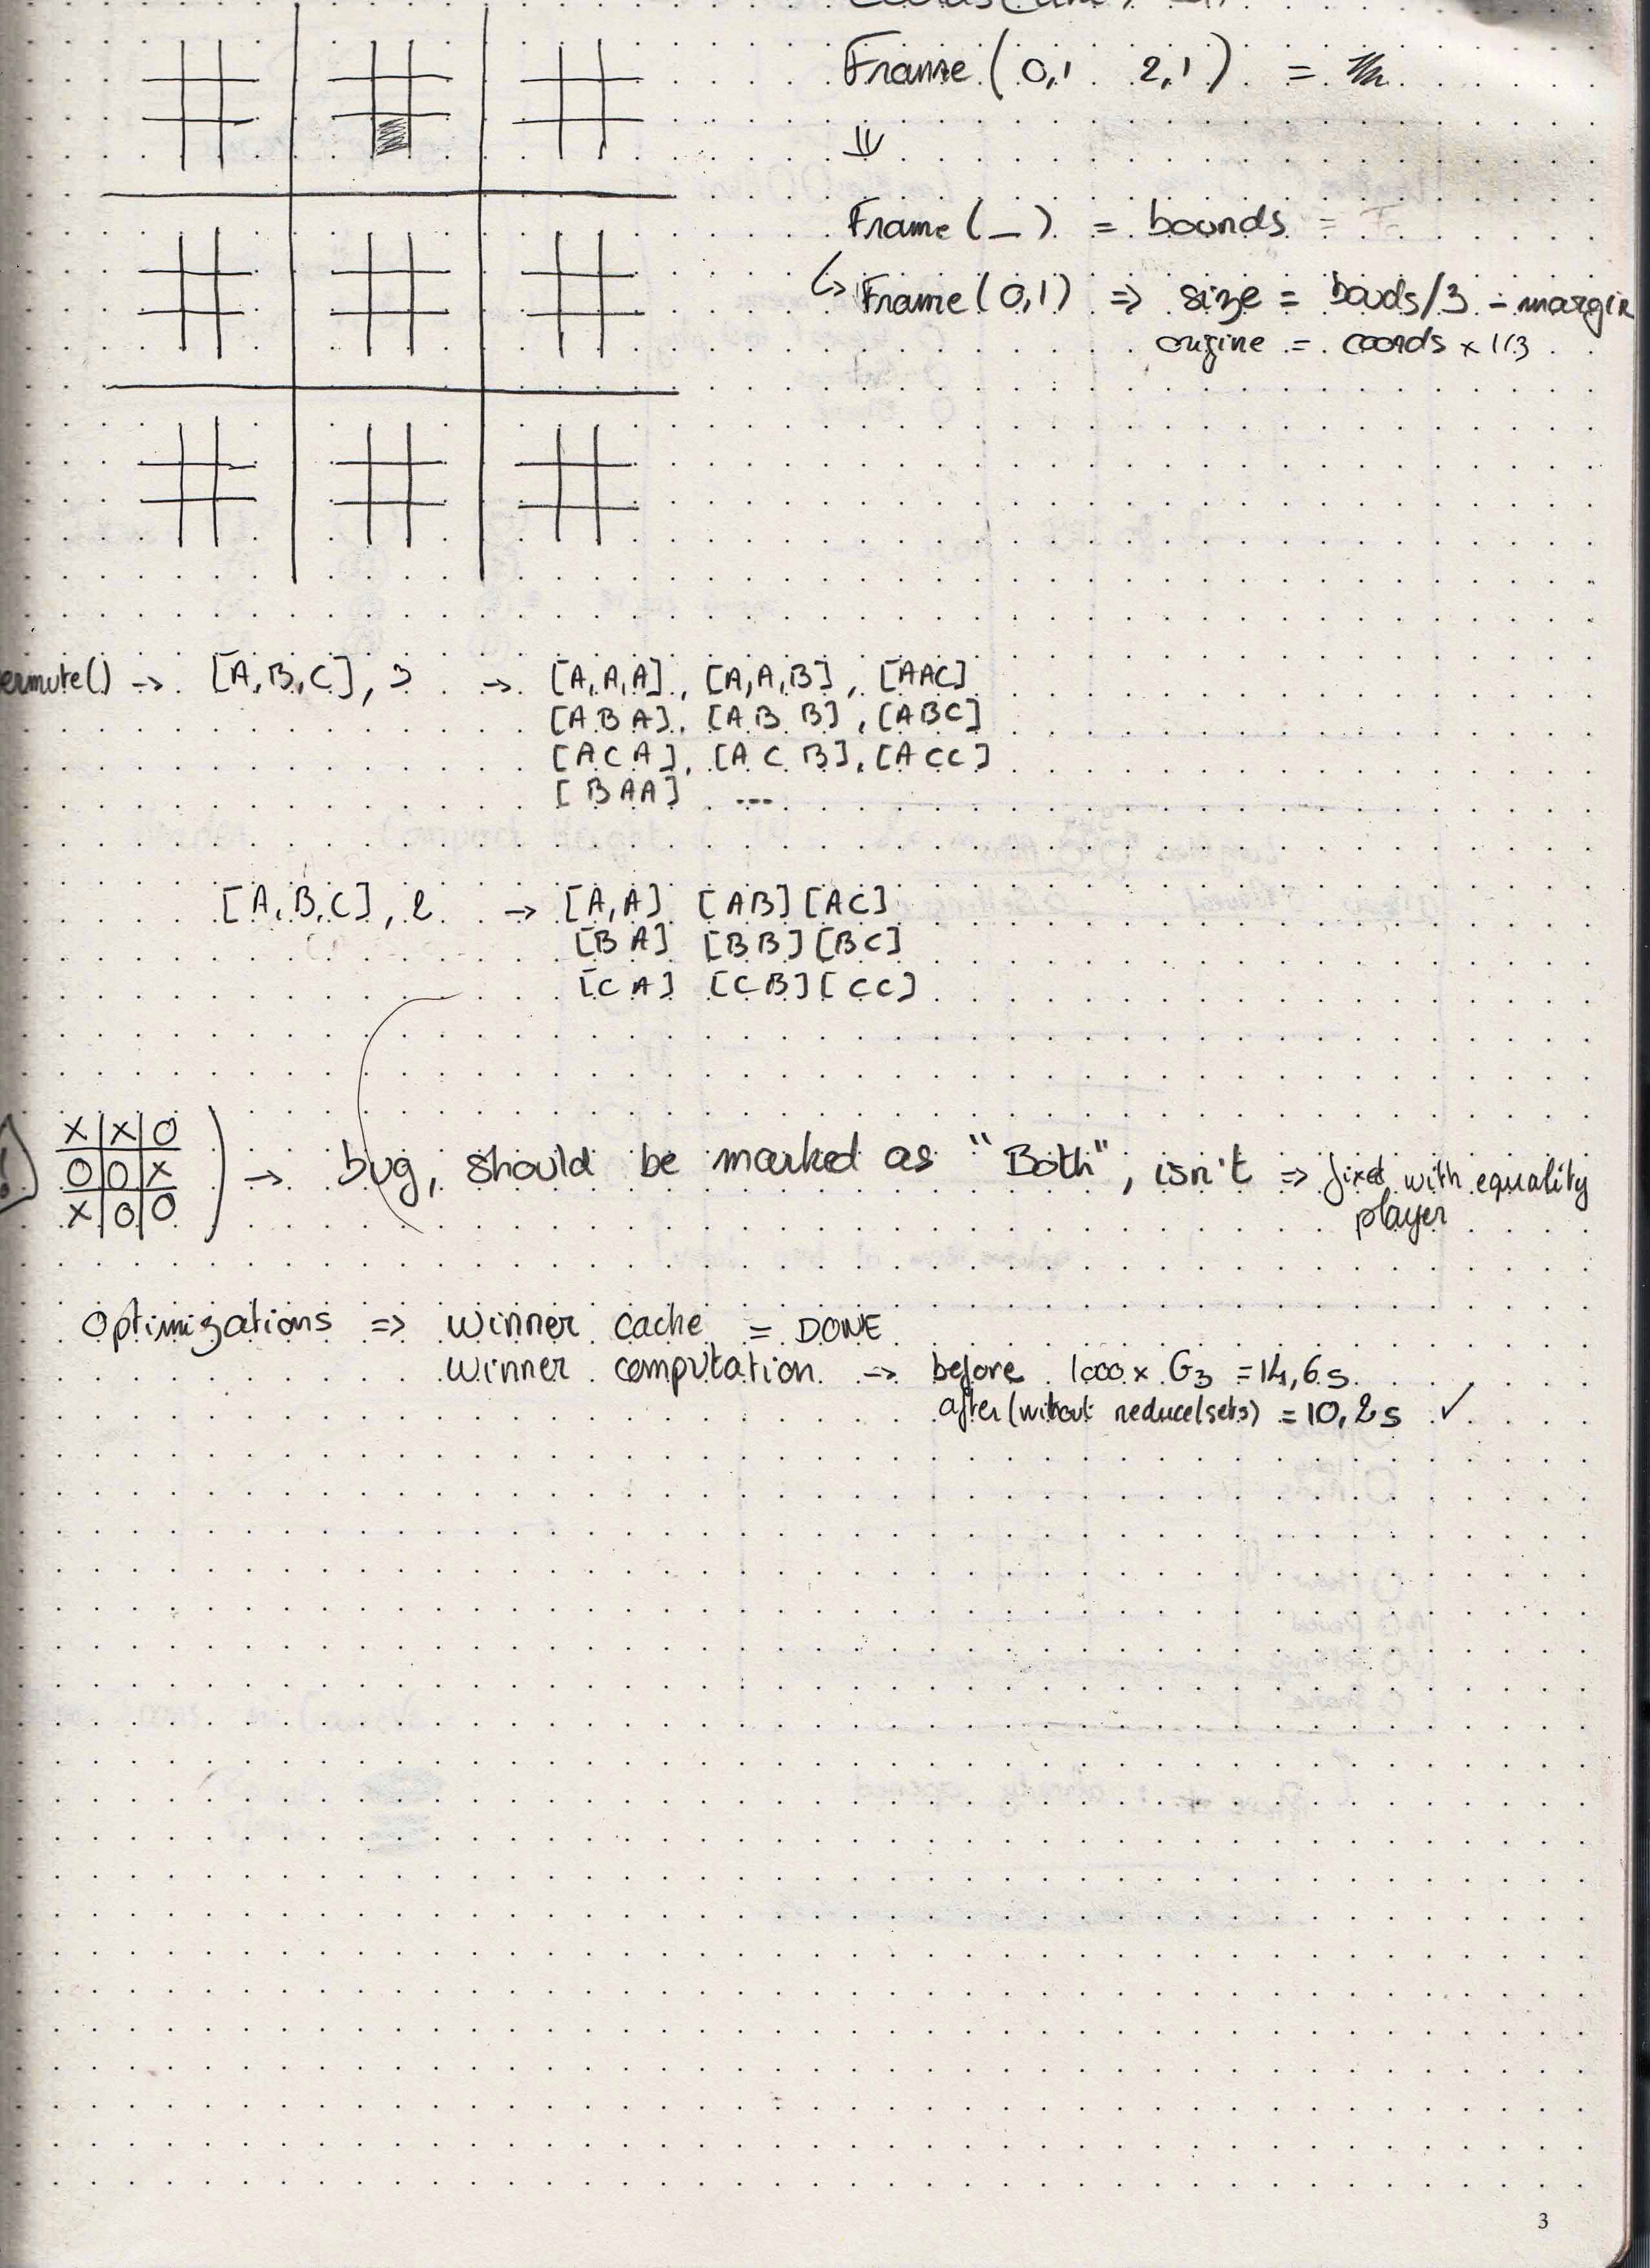 Frame ( 0,1 2,1 ) =
⇓
Frame ( _ ) = bounds =
↳ Frame (0,1) ⇒ size = bouds/3 - margin
origine = coords x 1/3
ermute() → [A,B,C], 3 → [A,A,A], [A,A,B], [AAC]
[A B A], [A B B], [ABC]
[A C A], [A C B], [A CC]
[ B AA] ...
[A,B,C], 2 → [A,A] [AB] [AC]
[B A] [B B] [BC]
[C A] [C B] [ CC]
X|X|O
O|O|X
X|O|O
→ bug, should be marked as "Both", isn't ⇒ fixed with equality
player
Optimizations ⇒ winner cache = DONE
winner computation → before 1000 x G3 = 14,6 s
after (witout reduce(sets) = 10,2s ✓
3